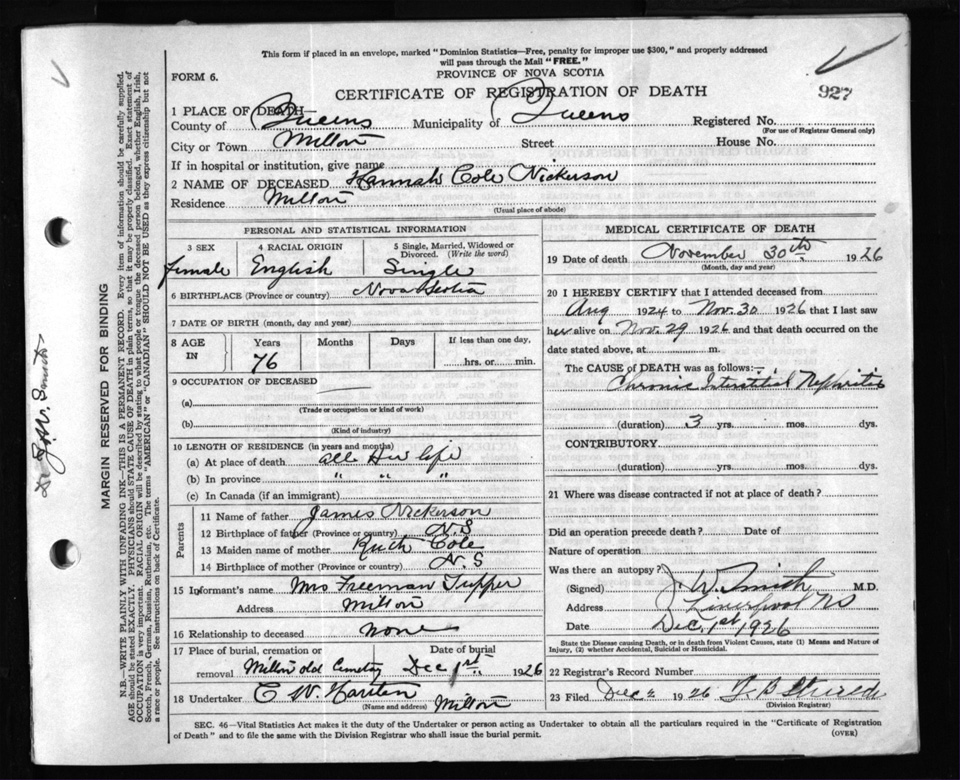 This form if placed in an envelope, marked "Dominion Statistics—Free, penalty for improper use $300," and properly addressed
will pass through the Mail "FREE."
FORM 6.
PROVINCE OF NOVA SCOTIA
CERTIFICATE OF REGISTRATION OF DEATH
927
1 PLACE OF DEATH—
County of Queens Municipality of Queens Registered No.
(For use of Registrar General only)
City or Town Milton Street House No.
If in hospital or institution, give name
2 NAME OF DECEASED Hannah Cole Nickerson
Residence Milton
(Usual place of abode)
PERSONAL AND STATISTICAL INFORMATION
3 SEX 4 RACIAL ORIGIN 5 Single, Married, Widowed or
Divorced. (Write the word)
female English Single
6 BIRTHPLACE (Province or country) Nova Scotia
7 DATE OF BIRTH (month, day and year)
8 AGE
IN
Years Months Days If less than one day,
76 hrs. or min.
9 OCCUPATION OF DECEASED
(a)
(Trade or occupation or kind of work)
(b)
(Kind of industry)
10 LENGTH OF RESIDENCE (in years and months)
(a) At place of death all Her life
(b) In province " " "
(c) In Canada (if an immigrant)
Parents
11 Name of father James Nickerson
12 Birthplace of father (Province or country) N.S
13 Maiden name of mother Ruth Cole
14 Birthplace of mother (Province or Country) N.S
15 Informant's name Mrs Freeman Tupper
Address Milton
16 Relationship to deceased none
17 Place of burial, cremation or Date of burial
removal Milton old Cemetary Dec 1st 1926
18 Undertaker C W
(Name and address) Milton
MEDICAL CERTIFICATE OF DEATH
19 Date of death November 30th 1926
(Month, day and year)
20 I HEREBY CERTIFY that I attended deceased from
Aug 1924 to Nov. 30 1926 that I last saw
her alive on Nov. 29 1926 and that death occurred on the
date stated above, at m.
The CAUSE OF DEATH was as follows:—
Chronic Interstitial Nephritis
(duration) 3 yrs. mos. dys.
CONTRIBUTORY
(duration) yrs. mos. dys.
21 Where was disease contracted if not at place of death?
Did an operation precede death? Date of
Nature of operation
Was there an autopsy?
(Signed) J. W. Smith M.D.
Address Liverpool NS
Date Dec. 1st 1926
State the Disease Causing Death, or in death from Violent Causes, state (1) Means and Nature of
Injury, (2) whether Accidental, Suicidal or Homicidal.
22 Registrar's Record Number
23 Filed Dec 2 1926
(Division Registrar)
SEC. 46—Vital Statistics Act makes it the duty of the Undertaker or person acting as Undertaker to obtain all the particulars required in the "Certificate of Registration
of Death" and to file the same with the Division Registrar who shall issue the burial permit.
(OVER)
MARGIN RESERVED FOR BINDING
N.B.—WRITE PLAINLY WITH UNFADING INK—THIS IS A PERMANENT RECORD. Every item of information should be carefully supplied.
AGE should be stated EXACTLY. PHYSICIANS should STATE CAUSE OF DEATH in plain terms, so that it may be properly classified. Exact statement of
OCCUPATION is very important. RACIAL ORIGIN will be described by stating to what people or tongue the deceased person belonged, whether English, Irish,
Scotch, French, German, Russian, Ruthenian, etc. The terms "AMERICAN" or "CANADIAN" SHOULD NOT BE USED as they express citizenship but not
a race or people. See instructions on back of Certificate.
Dr J.W. Smith